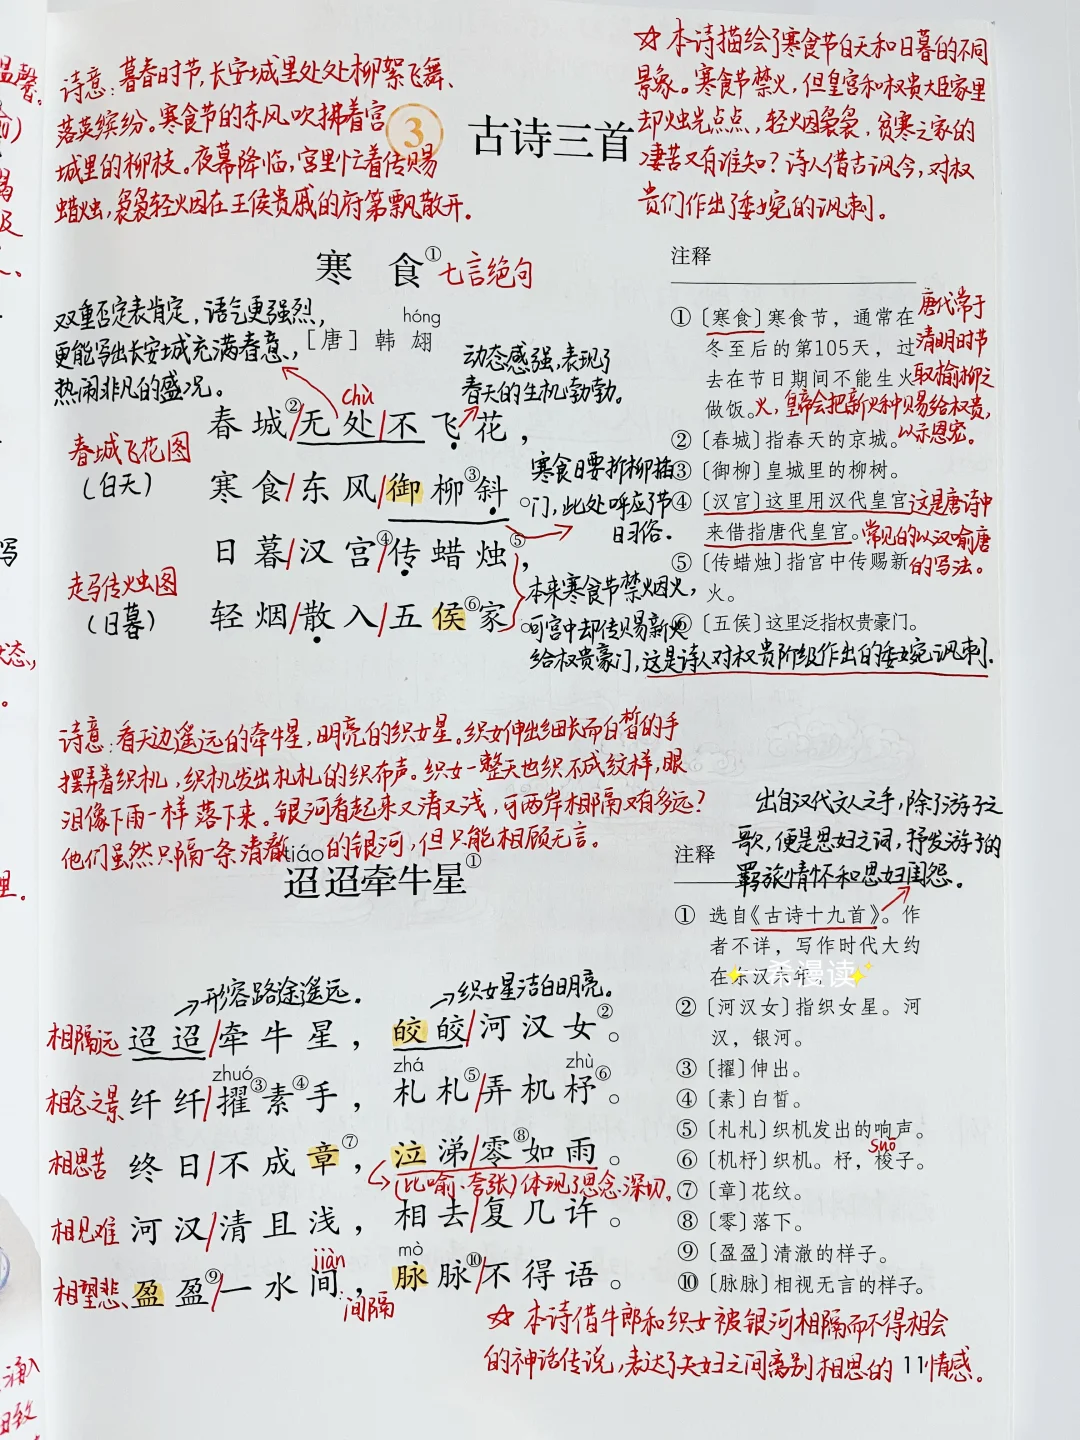 诗意：暮春时节，长安城里处处柳絮飞舞、
落英缤纷。寒食节的东风吹拂着宫
城里的柳枝。夜幕降临，宫里忙着传赐
蜡烛，袅袅轻烟因在王侯贵戚的府第飘散开。
3
古诗三首
☆本诗描绘了寒食节白天和日暮的不同
景象。寒食节禁火，但皇宫和权贵大臣家里
却烛光点点，轻烟袅袅，贫寒之家的
凄苦又有谁知？诗人借古讽今，对权
贵们作出了委婉的讽刺。
寒 食①
七言绝句
hóng
［唐］韩 翃
双重否定表肯定，语气更强烈，
更能写出长安城充满春意、
热闹非凡的盛况。
动态感强，表现了
春天的生机勃勃。
chù
春城②/无处/不飞花，
春城飞花图
（白天）
寒食/东风/御柳③斜。
寒食日要折柳插
门，此处呼应了节
日习俗。
日暮/汉宫④/传蜡烛⑤，
走马传火虫图
（日暮）
轻烟/散入/五侯⑥家。
本来寒食节禁烟火，
可宫中却传赐新火
给权贵豪门，这是诗人对权贵阶级作出的委婉讽刺.
注释
①〔寒食〕寒食节，通常在
冬至后的第105天，过
去在节日期间不能生火
做饭。
唐代常于
清明时节
取榆柳之
火，皇帝会把新火种赐给权贵，
以示恩宠。
②〔春城〕指春天的京城。
③〔御柳〕皇城里的柳树。
④〔汉宫〕这里用汉代皇宫
来借指唐代皇宫。
这是唐诗中
常见的以汉喻唐
的写法。
⑤〔传蜡烛〕指宫中传赐新
火。
⑥〔五侯〕这里泛指权贵豪门。
诗意：看天边遥远的牵牛星，明亮的织女星。织女伸出细长而白皙的手
摆弄着织机，织机发出札札的织布声。织女一整天也织不成纹样，眼
泪像下雨一样落下来。银河看起来又清又浅，可两岸相隔又有多远？
他们虽然只隔一条清澈的银河，但只能相顾无言。
tiáo
迢迢牵牛星①
出自汉代文人之手，除了游子之
歌，便是思妇之词，抒发游子的
羁旅情怀和思妇闺怨。
注释
①选自《古诗十九首》。作
者不详，写作时代大约
在东汉末年。
希漫读
②〔河汉女〕指织女星。河
汉，银河。
③〔擢〕伸出。
④〔素〕白皙。
⑤〔札札〕织机发出的响声。
suō
⑥〔机杼〕织机。杼，梭子。
⑦〔章〕花纹。
⑧〔零〕落下。
⑨〔盈盈〕清澈的样子。
⑩〔脉脉〕相视无言的样子。
形容路途遥远.
织女星洁白明亮.
相隔远 迢迢/牵牛星， 皎皎/河汉女②。
zhuó zhá zhù
相念之景 纤纤/擢③素④手， 札札⑤/弄机杼⑥。
相思苦 终日/不成章⑦， 泣涕/零⑧如雨。
（比喻·夸张）体现了思念深切.
相见难 河汉/清且浅， 相去/复几许。
jiàn mò
相望悲 盈盈⑨/一水间， 脉脉⑩/不得语。
间隔
☆本诗借牛郎和织女被银河相隔而不得相会
的神话传说，表达了夫妇之间离别相思的情感。
11